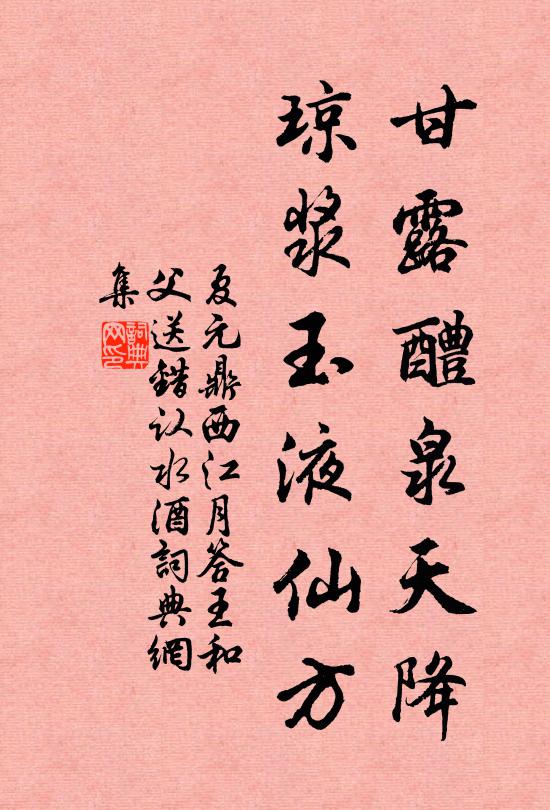 甘露醴泉天降
琼浆玉液仙方
夏元鼎西江月答王和
父送错认水酒詞典網
集
詞典网印